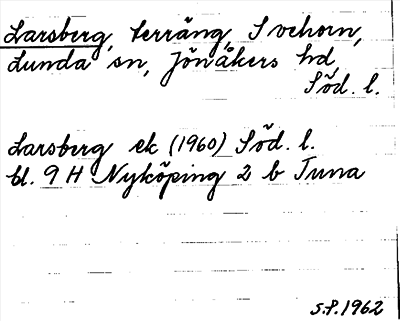 Larsberg, terräng, Svehorn,
Lunda sn, Jönåkers hd,
Söd. l.
Larsberg ek (1960) Söd. l.
bl. 9 H Nyköping 2 b Tuna
S.P. 1962